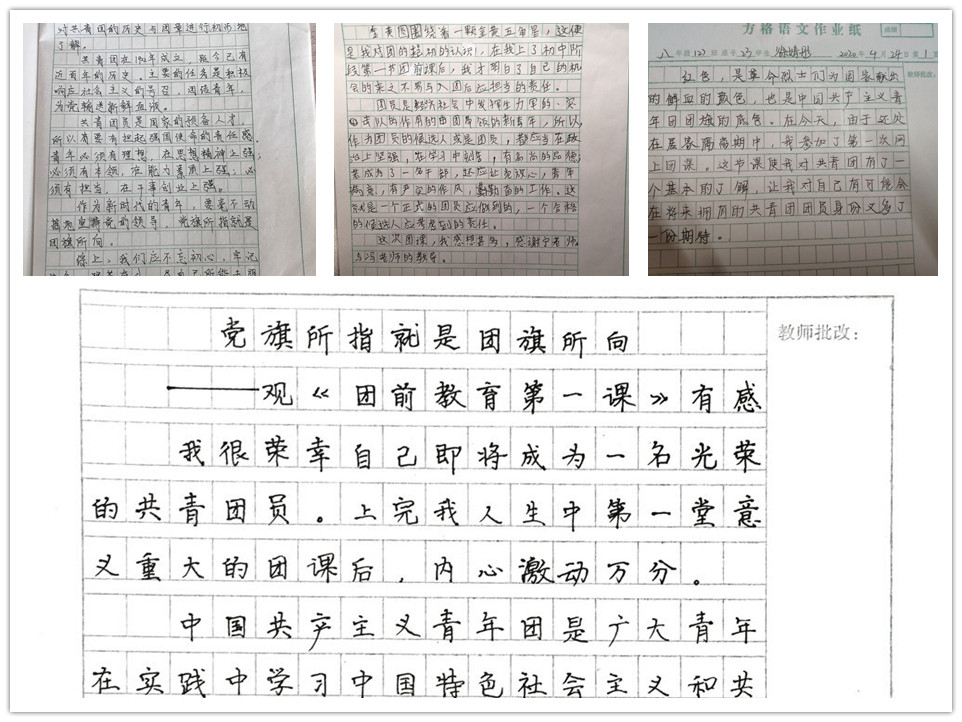 对共青团的历史与团章进行初步地
了解。
共青团在1922年成立，距今已有
近百年的历史。主要的任务是积极
响应社会主义的号召，团结青年，
为党输送新鲜血液。
共青团员是国家的预备人才，
所以有要有担起强国使命的责任感。
青年必须有理想，在思想精神上强；
必须有本领，在能力素质上强；必
须有担当，在干事创业上强。
作为新时代的青年，要毫不动
摇地坚持党的领导，党旗所指就是
团旗所向。
综上，我们应不忘初心，牢记
金黄色圈绕着一颗金黄五角星，这便
是我对团的最初的认识，在我上了初中阶
段第一节团前课后，我才明白了自己的机
会的来之不易与入团后应担当的责任。
作为团员的候选人或是团员，都应当在政
治上坚强，在学习中刻苦，有高尚的品德，
就是一个正式的团员应做到的，一个合格
的候选人应考虑到的责任。
这次团课，我感想甚多，感谢宁老师
与冯老师的教导。
方格语文作业纸
成绩
八年级122班座号23学生 2020年4月29日第1页
教师批改：
红色，是革命烈士们为国家献出
的鲜血的颜色，也是中国共产主义青
年团团旗的底色。在今天，由于还处
在居家隔离期中，我参加了第一次网
上团课。这节课使我对共青团有了一
个基本的了解，让我对自己有可能会
在将来拥有的共青团团员身份又多了
一份期待。
党旗所指就是团旗所向
——观《团前教育第一课》有感
教师批改：
我很荣幸自己即将成为一名光荣
的共青团员。上完我人生中第一堂意
义重大的团课后，内心激动万分。
中国共产主义青年团是广大青年
在实践中学习中国特色社会主义和共